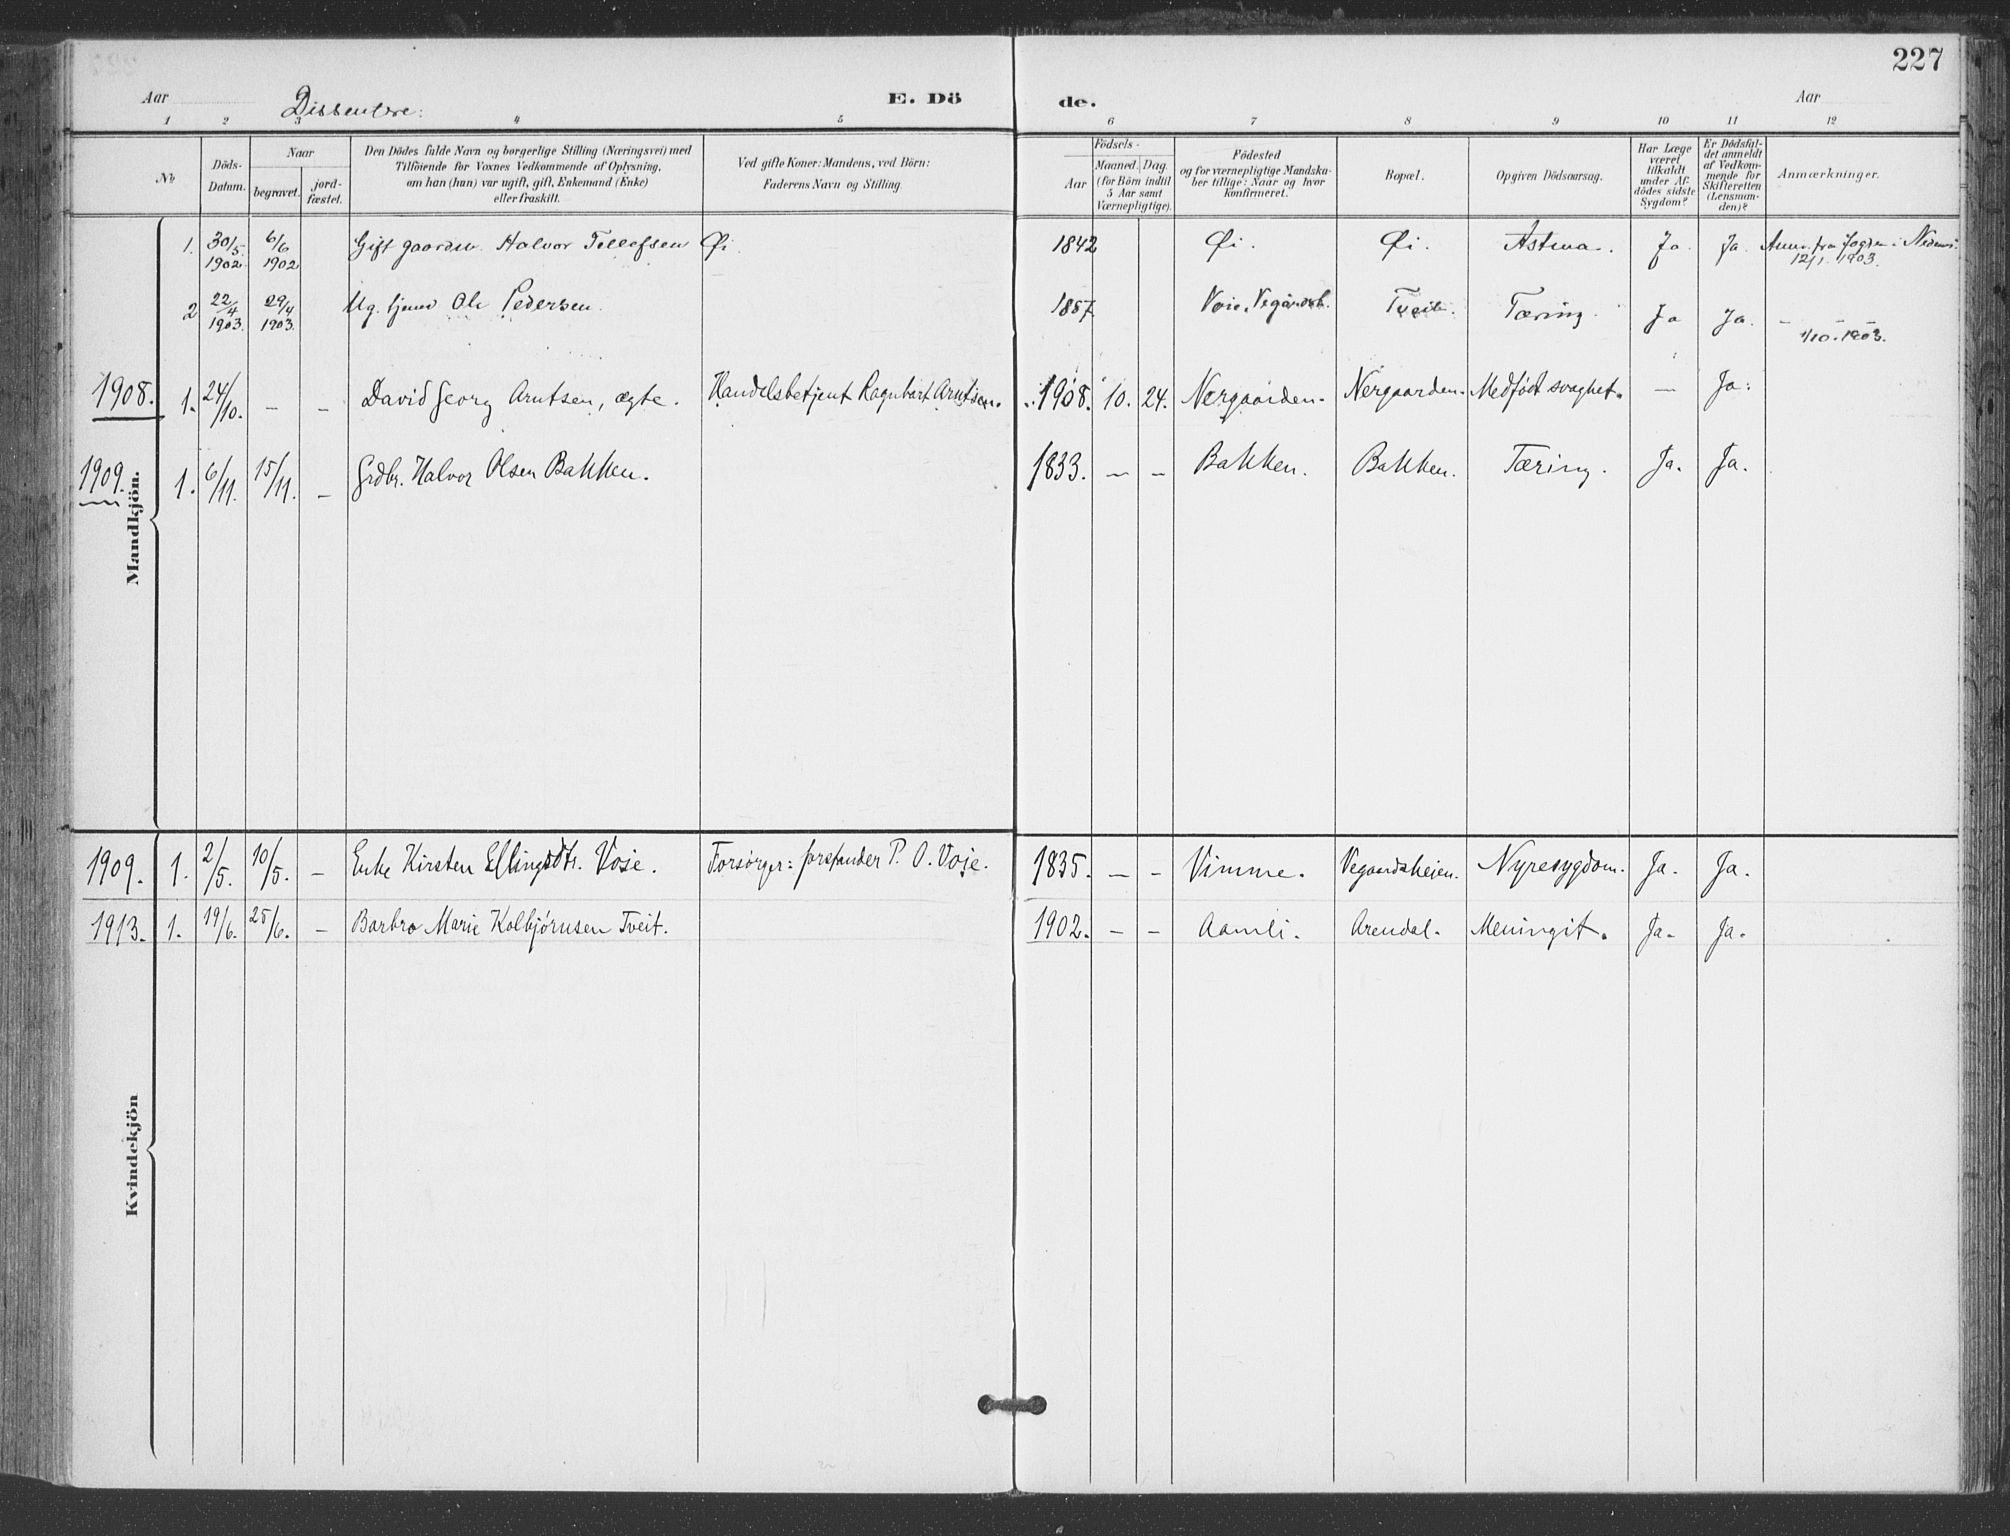 227
Aar Dissentere: E. Dö de. Aar
1 2 3 4 5 6 7 8 9 10 11 12
No.
Döds-Datum.
Naar
begravet.
jord-fæstet.
Den Dödes fulde Navn og borgerlige Stilling (Næringsvei) med
Tilföiende for Voxnes Vedkommende af Oplysning,
om han (hun) var ugift, gift, Enkemand (Enke)
eller fraskilt.
Ved gifte Koner: Mandens, ved Börn:
Faderens Navn og Stilling.
Födsels-
Aar
Maaned. Dag.
(for Börn indtil
5 Aar samt
Værnepligtige).
Födested
og for værnepligtige Mandska-
ber tillige: Naar og hvor
konfirmeret.
Bopæl.
Opgiven Dödsaarsag.
Har Læge
været
tilkaldt
under Af-
dödes sidste
Sygdom?
Er Dödsfal-
det anmeldt
af Vedkom-
mende for
Skifteretten
(Lensman-
den)?
Anmærkninger.
1. 30/5 1902 6/6 1902 Gift gaardbr. Halvor Tellefsen Øi. 1842 Øi. Øi. Astma. Ja Ja. Anm. fra Fogden i Nedenes
12/1 1903.
2 22/4 1903. 29/4 1903. Ug. Ole Pedersen. 1857 Voie, Vegårdsh. Tveit. Tæring. Ja Ja. – – 1/10. 1903.
1908. 1. 24/10. – – David Georg Arntsen, ægte. Handelsbetjent Ragnhart Arntsen. 1908. 10. 24. Nergaarden. Nergaarden. Medfødt svaghet. — Ja.
1909. 1. 6/11. 15/11. – Grdbr. Halvor Olsen Bakken. 1833. – – Bakken. Bakken. Tæring. Ja. Ja.
Mandkjön.
1909. 1. 2/5. 10/5. – Enke Kirsten Ellingsdtr. Voje. Forsörger: forstander P. O. Voje. 1835. – – Vimme. Vegaardsheien. Nyresygdom. Ja. Ja.
1913. 1. 19/6. 25/6. – Barbro Marie Kolbjørnsen Tveit. 1902. – – Aamli. Arendal. Meningit. Ja. Ja.
Kvindekjön